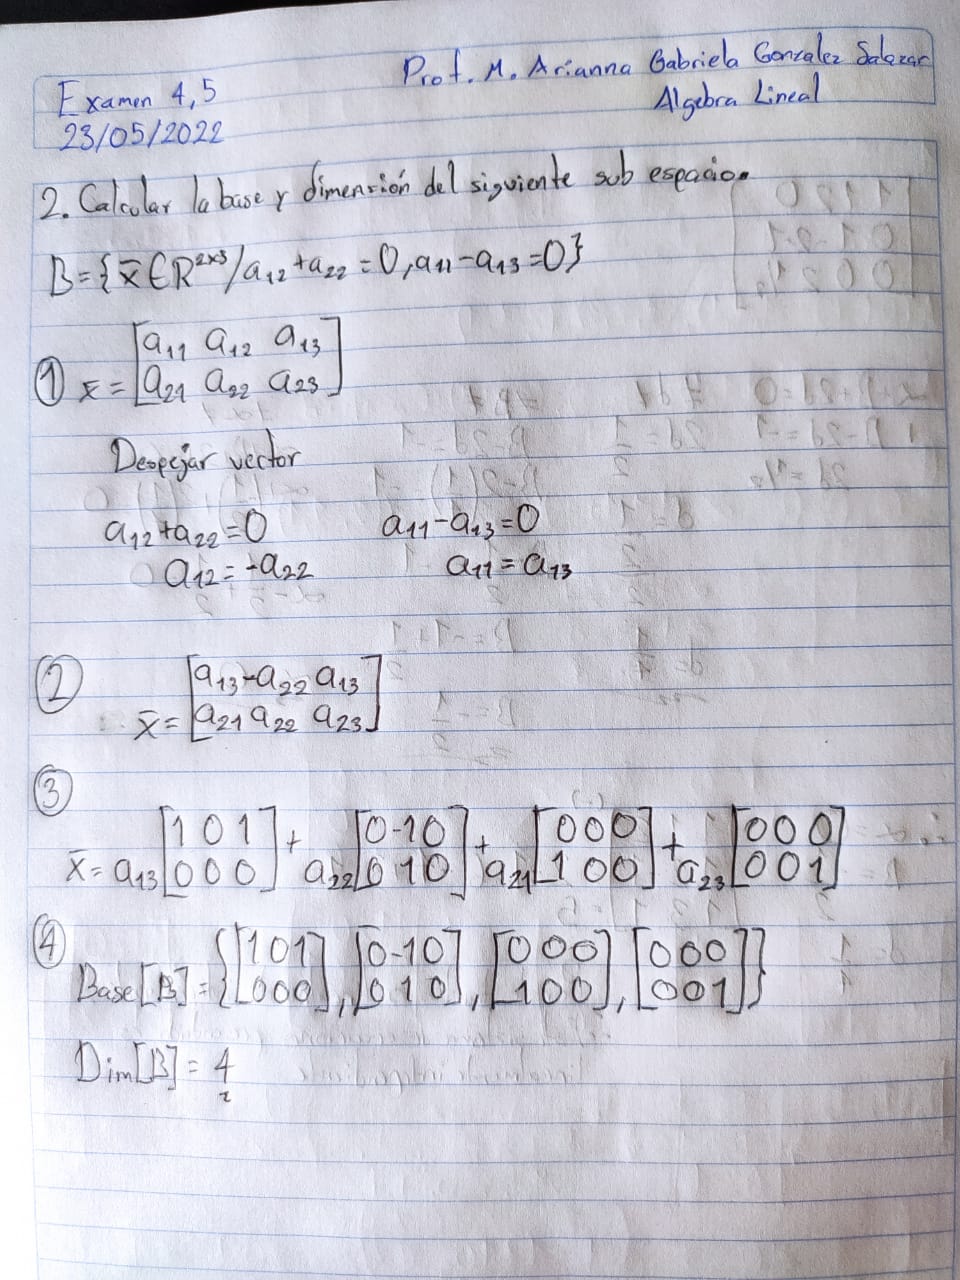 Prof. M. Arianna Gabriela Gonzalez Salazar
Examen 4,5
Algebra Lineal
23/05/2022
2. Calcular la base y dimensión del siguiente sub espacio.
B={x̄∈R²ˣ³/a₁₂+a₂₂=0,a₁₁-a₁₃=0}
① x̄=[a₁₁ a₁₂ a₁₃
a₂₁ a₂₂ a₂₃]
Despejar vector
a₁₂+a₂₂=0 a₁₁-a₁₃=0
a₁₂=-a₂₂ a₁₁=a₁₃
②
x̄=[a₁₃-a₂₂ a₁₃
a₂₁ a₂₂ a₂₃]
③
x̄=a₁₃[1 0 1
0 0 0]+a₂₂[0-10
0 10]+a₂₁[000
1 00]+a₂₃[00 0
001]
④
Base[B]={[101
000],[0-10
010],[000
100],[000
001]}
Dim[B]=4